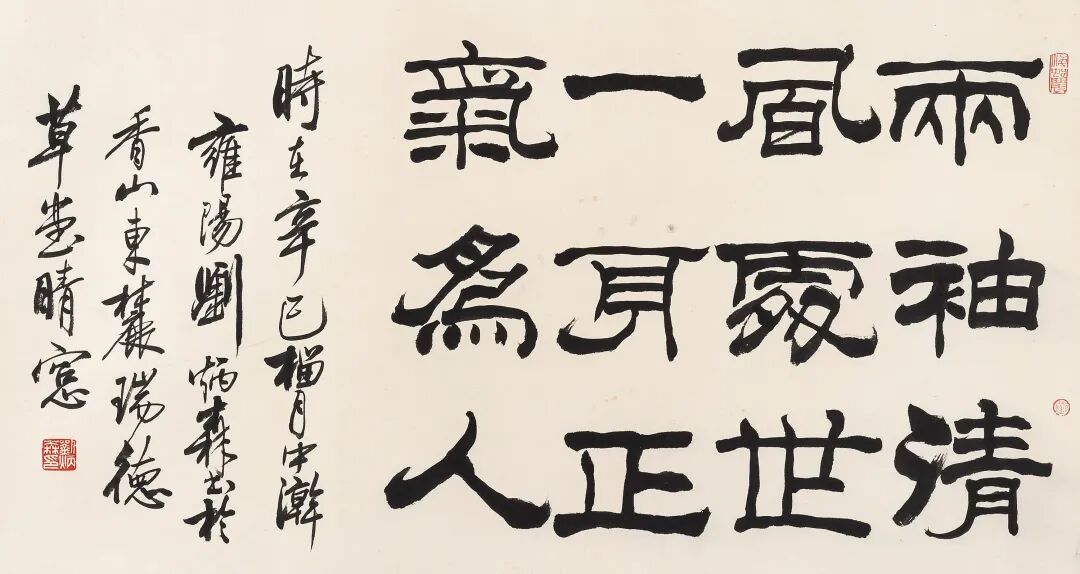 兩袖清
風處世
一身正
氣爲人
時在辛巳榴月中澣
雍陽劉炳森書於
香山東麓瑞德
草堂晴窓
劉炳森印